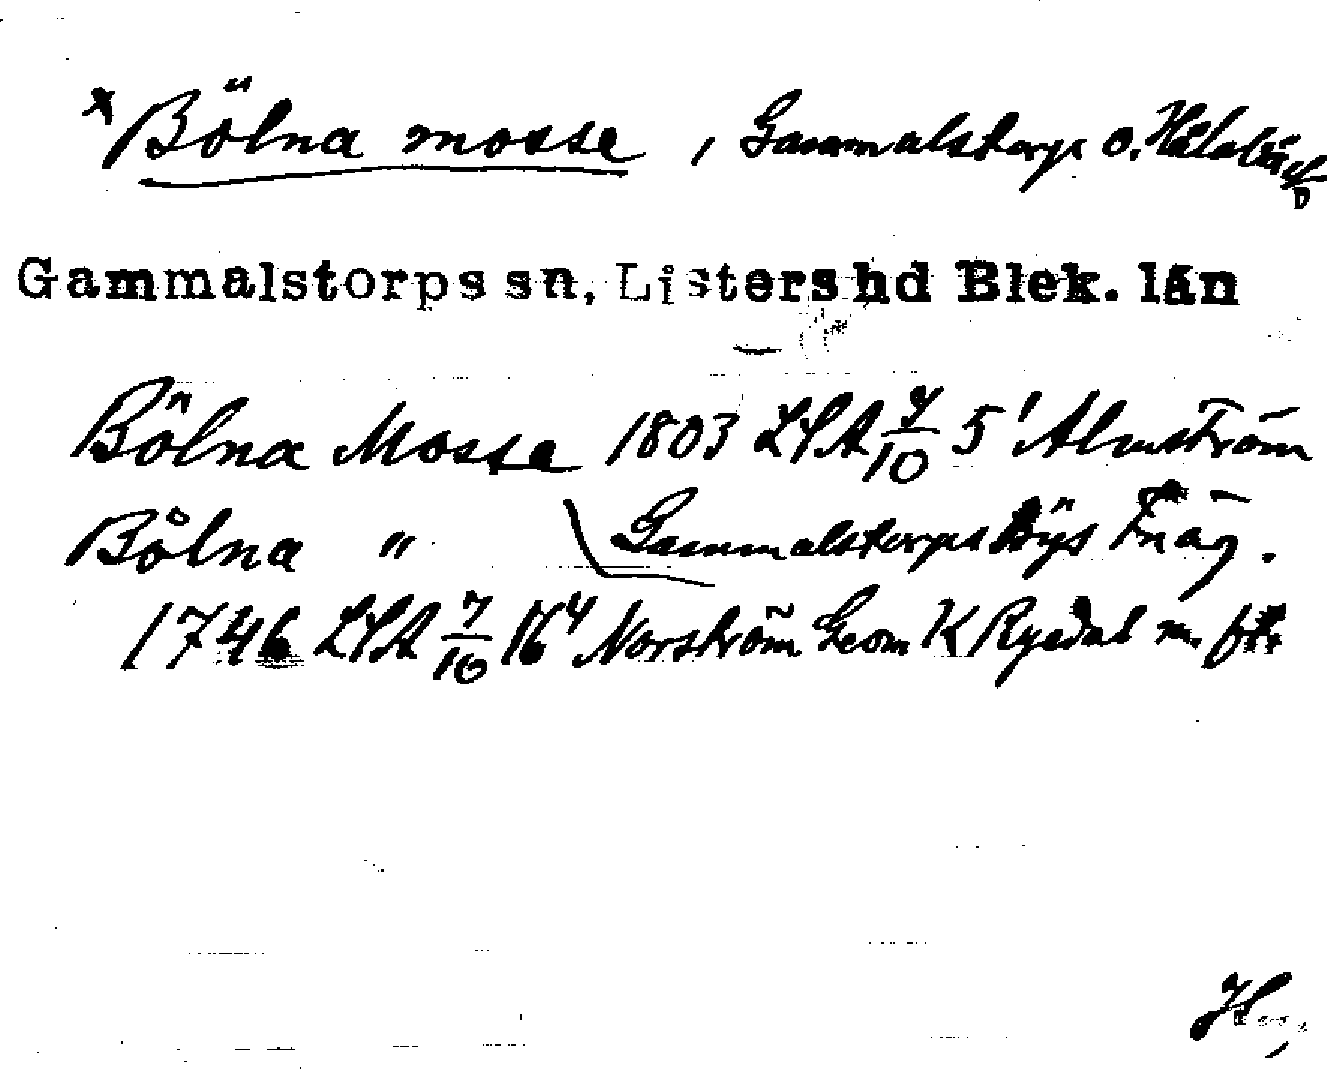 x Bölna mosse, Gammalstorp o.
Gammalstorps sn, Listers hd Blek. län
Bölna Mosse 1803 LSA 7/10 5¹ Almström
Bålna " Gammalstorps Bys Fräg.
1746 LSA 7/10 16⁴ Norström Geom K Rysdal m.